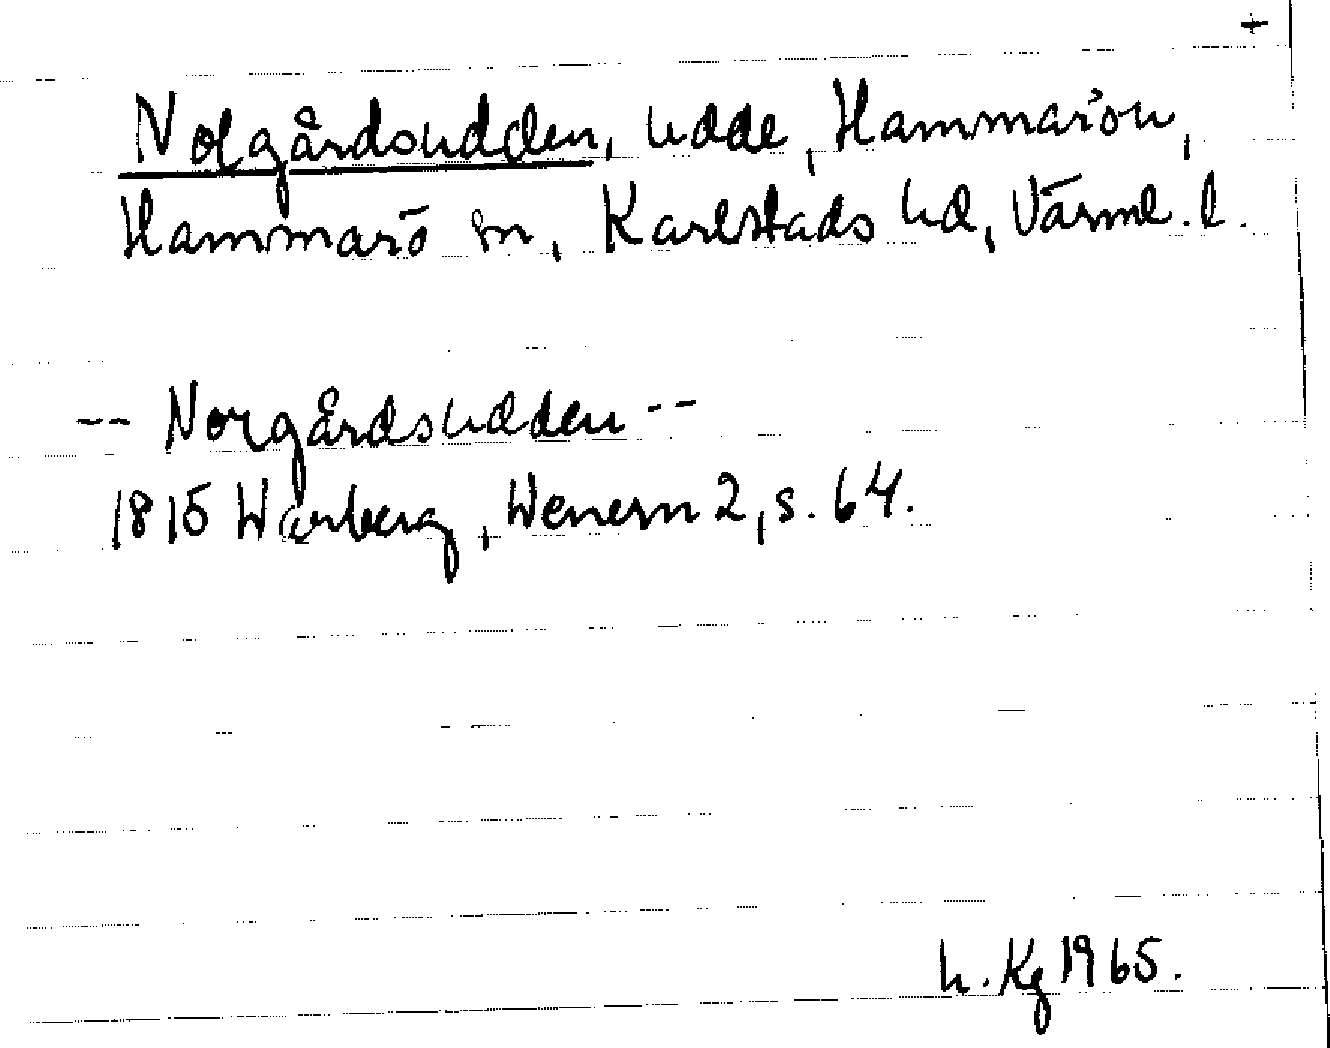 +
Nolgårdsudden, udde, Hammarön,
Hammarö sn, Karlstads hd, Värml. l.
-- Norgårdsudden --
1815 Warberg, Wenern 2, s. 64.
h. Kg 1965.